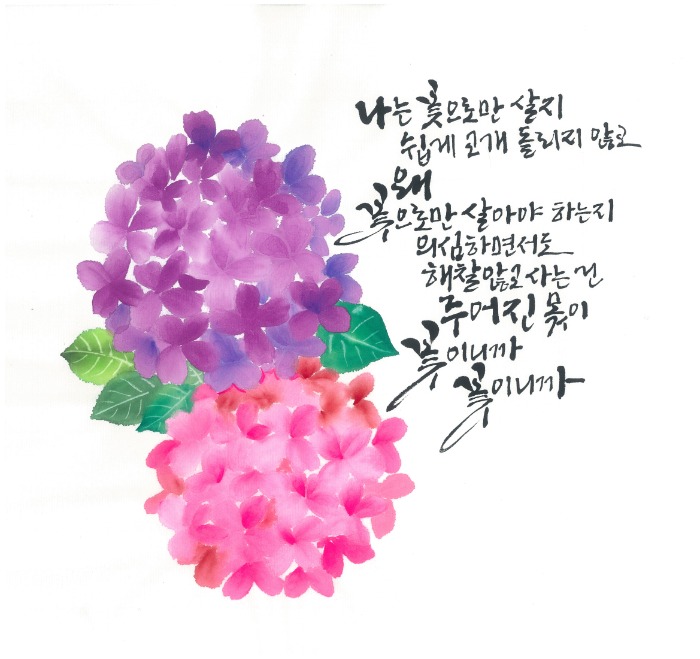 나는 꽃으로만 살지
쉽게 고개 돌리지 않고
왜
꽃으로만 살아야 하는지
의심하면서도
해찰않고 사는 건
주어진 몫이
꽃이니까
꽃이니까